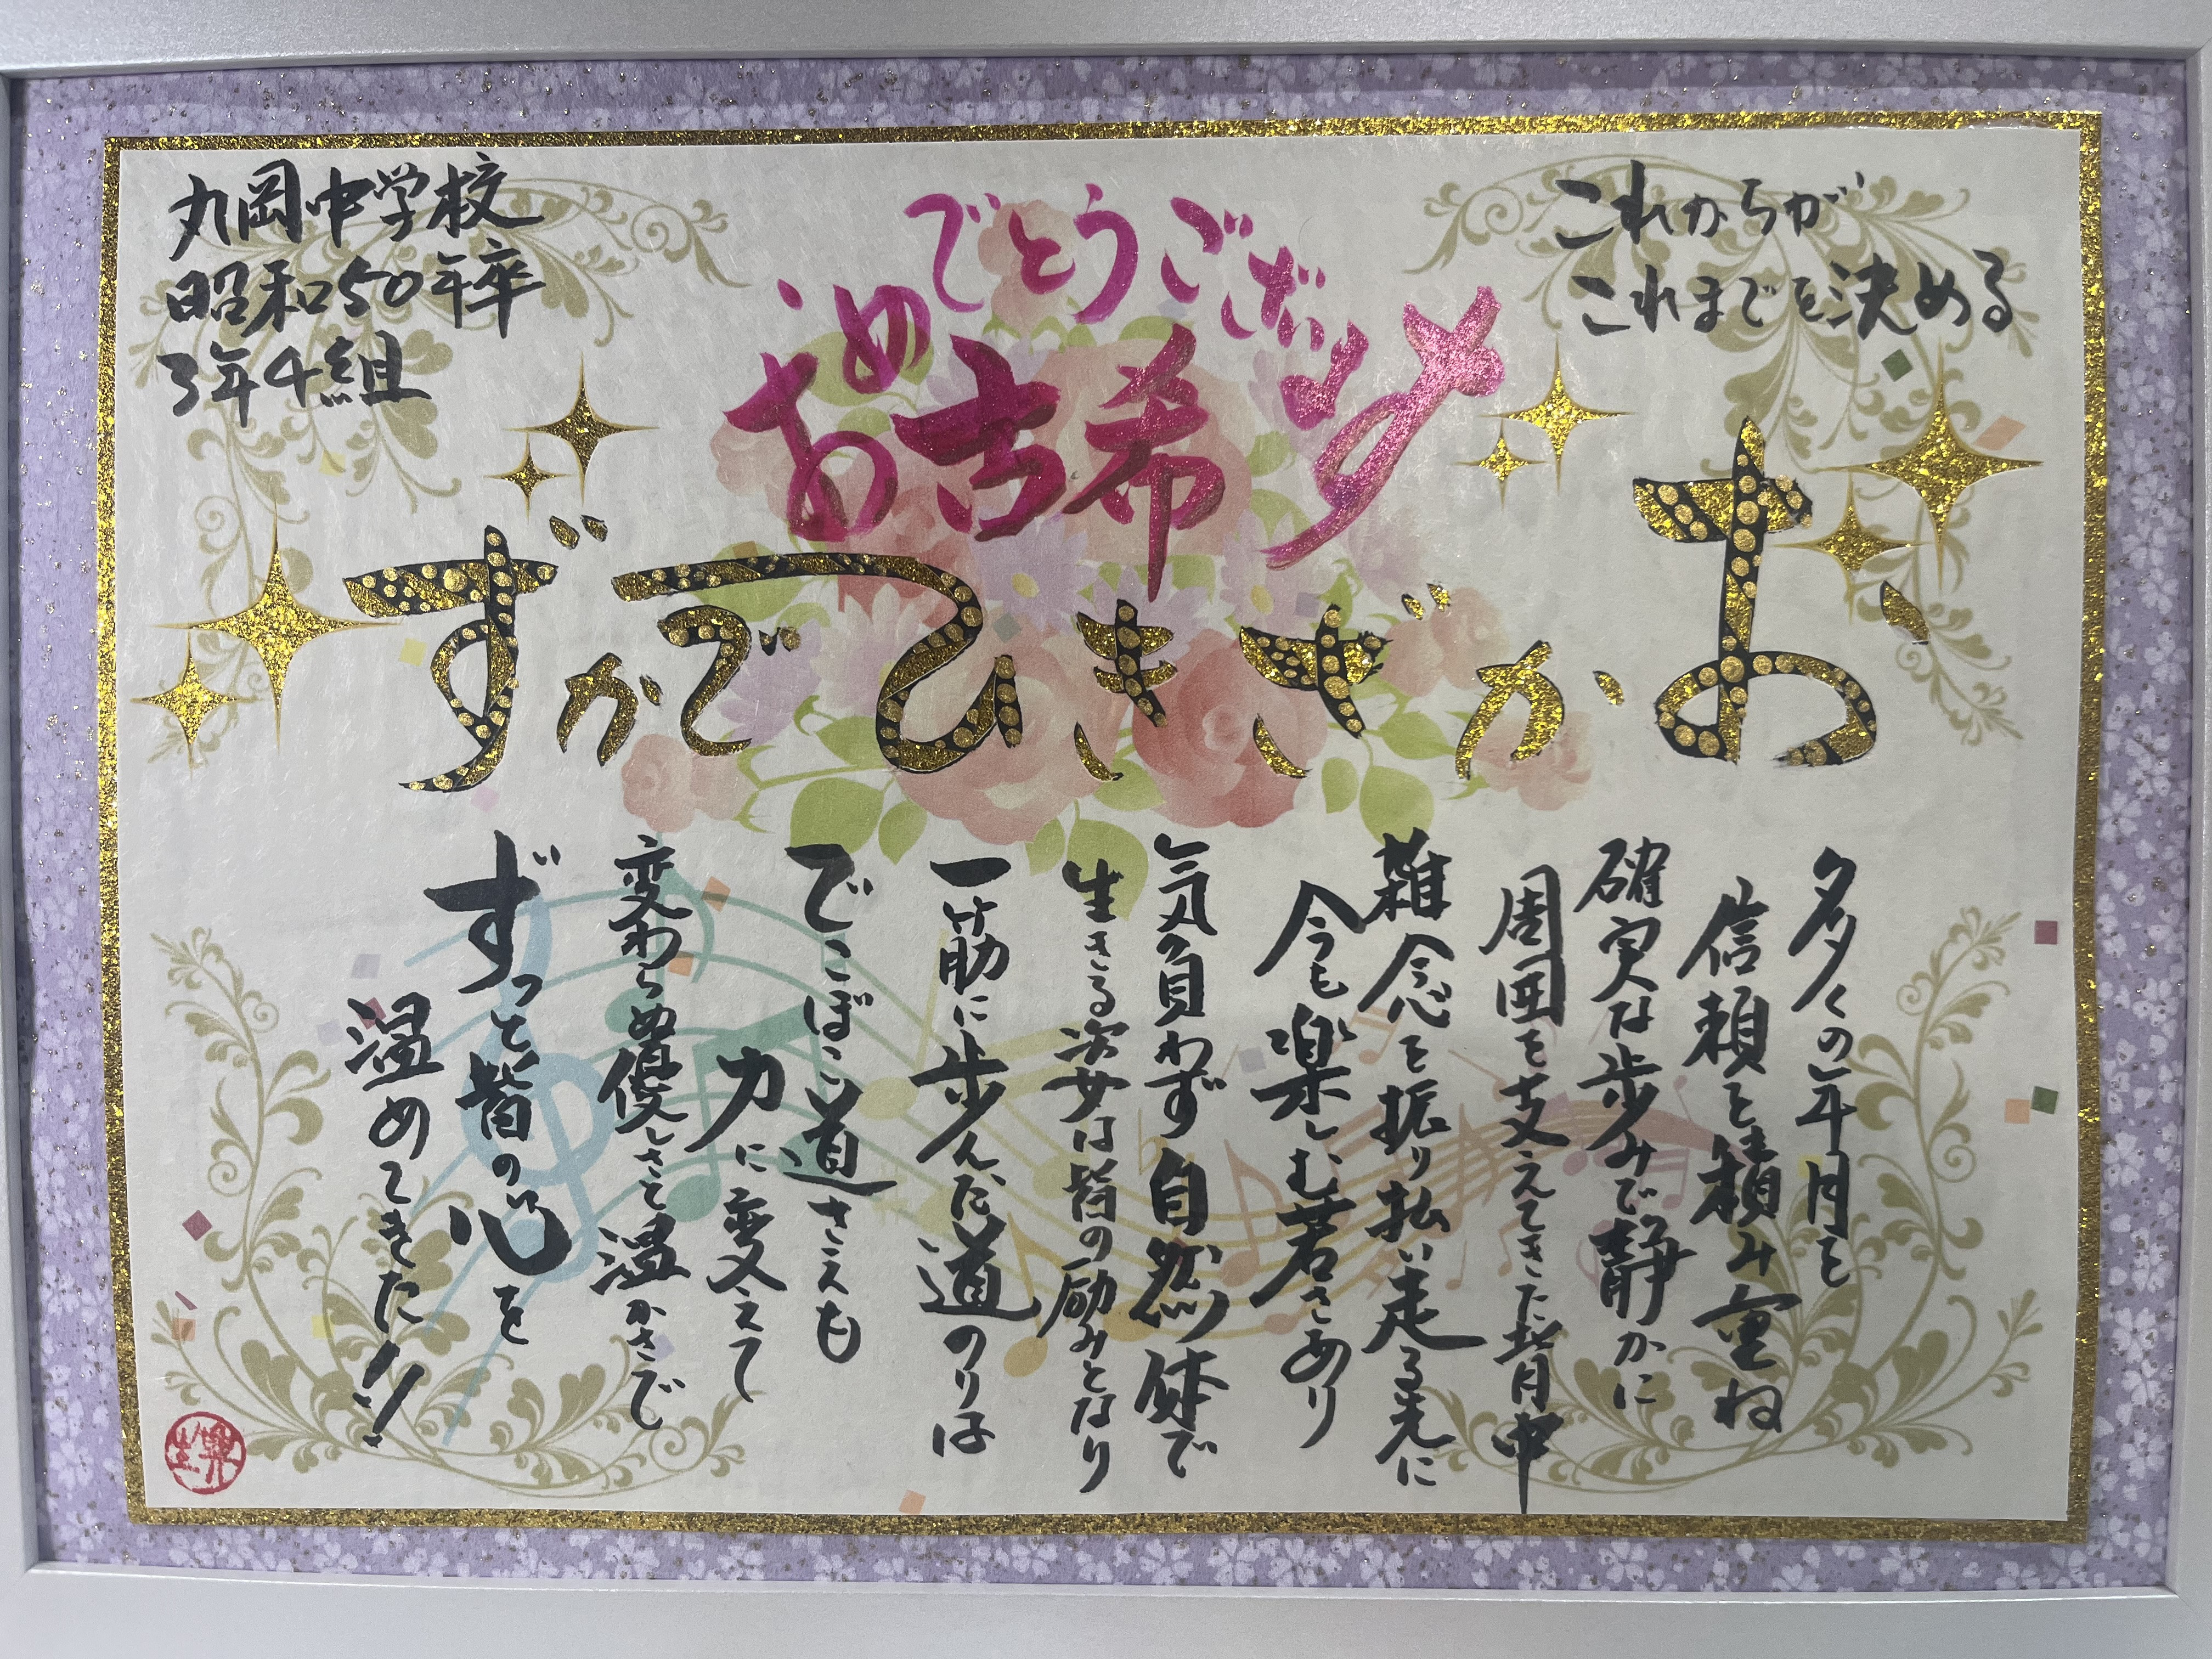 丸岡中学校
昭和50年卒
3年4組
古希
おめでとうございます
これからが
これまでを決める
おかざきひでかず
多くの年月を
信頼を積み重ね
確実な歩みで静かに
周囲を支えてきた背中
雑念を振り払い走る先に
今も楽しむ若さあり
気負わず自然体で
生きる姿は皆の励みとなり
一筋に歩んだ道のりは
でこぼこ道さえも
力に変えて
変わらぬ優しさと温かさで
ずっと皆の心を
温めてきた!!